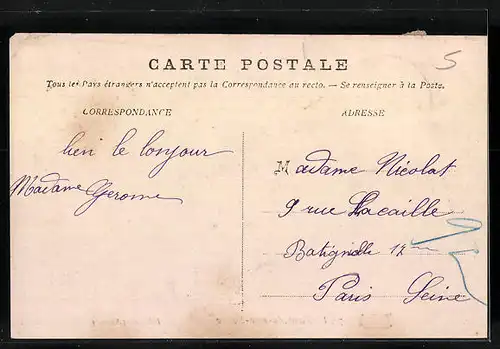 5
CARTE POSTALE
Tous les Pays étrangers n'acceptent pas la Correspondance au recto. — Se renseigner à la Poste.
CORRESPONDANCE
ADRESSE
bien le bonjour
Madame Gerome
Madame Nicolat
9 rue Lacaille
Batignolle 17me
Paris Seine